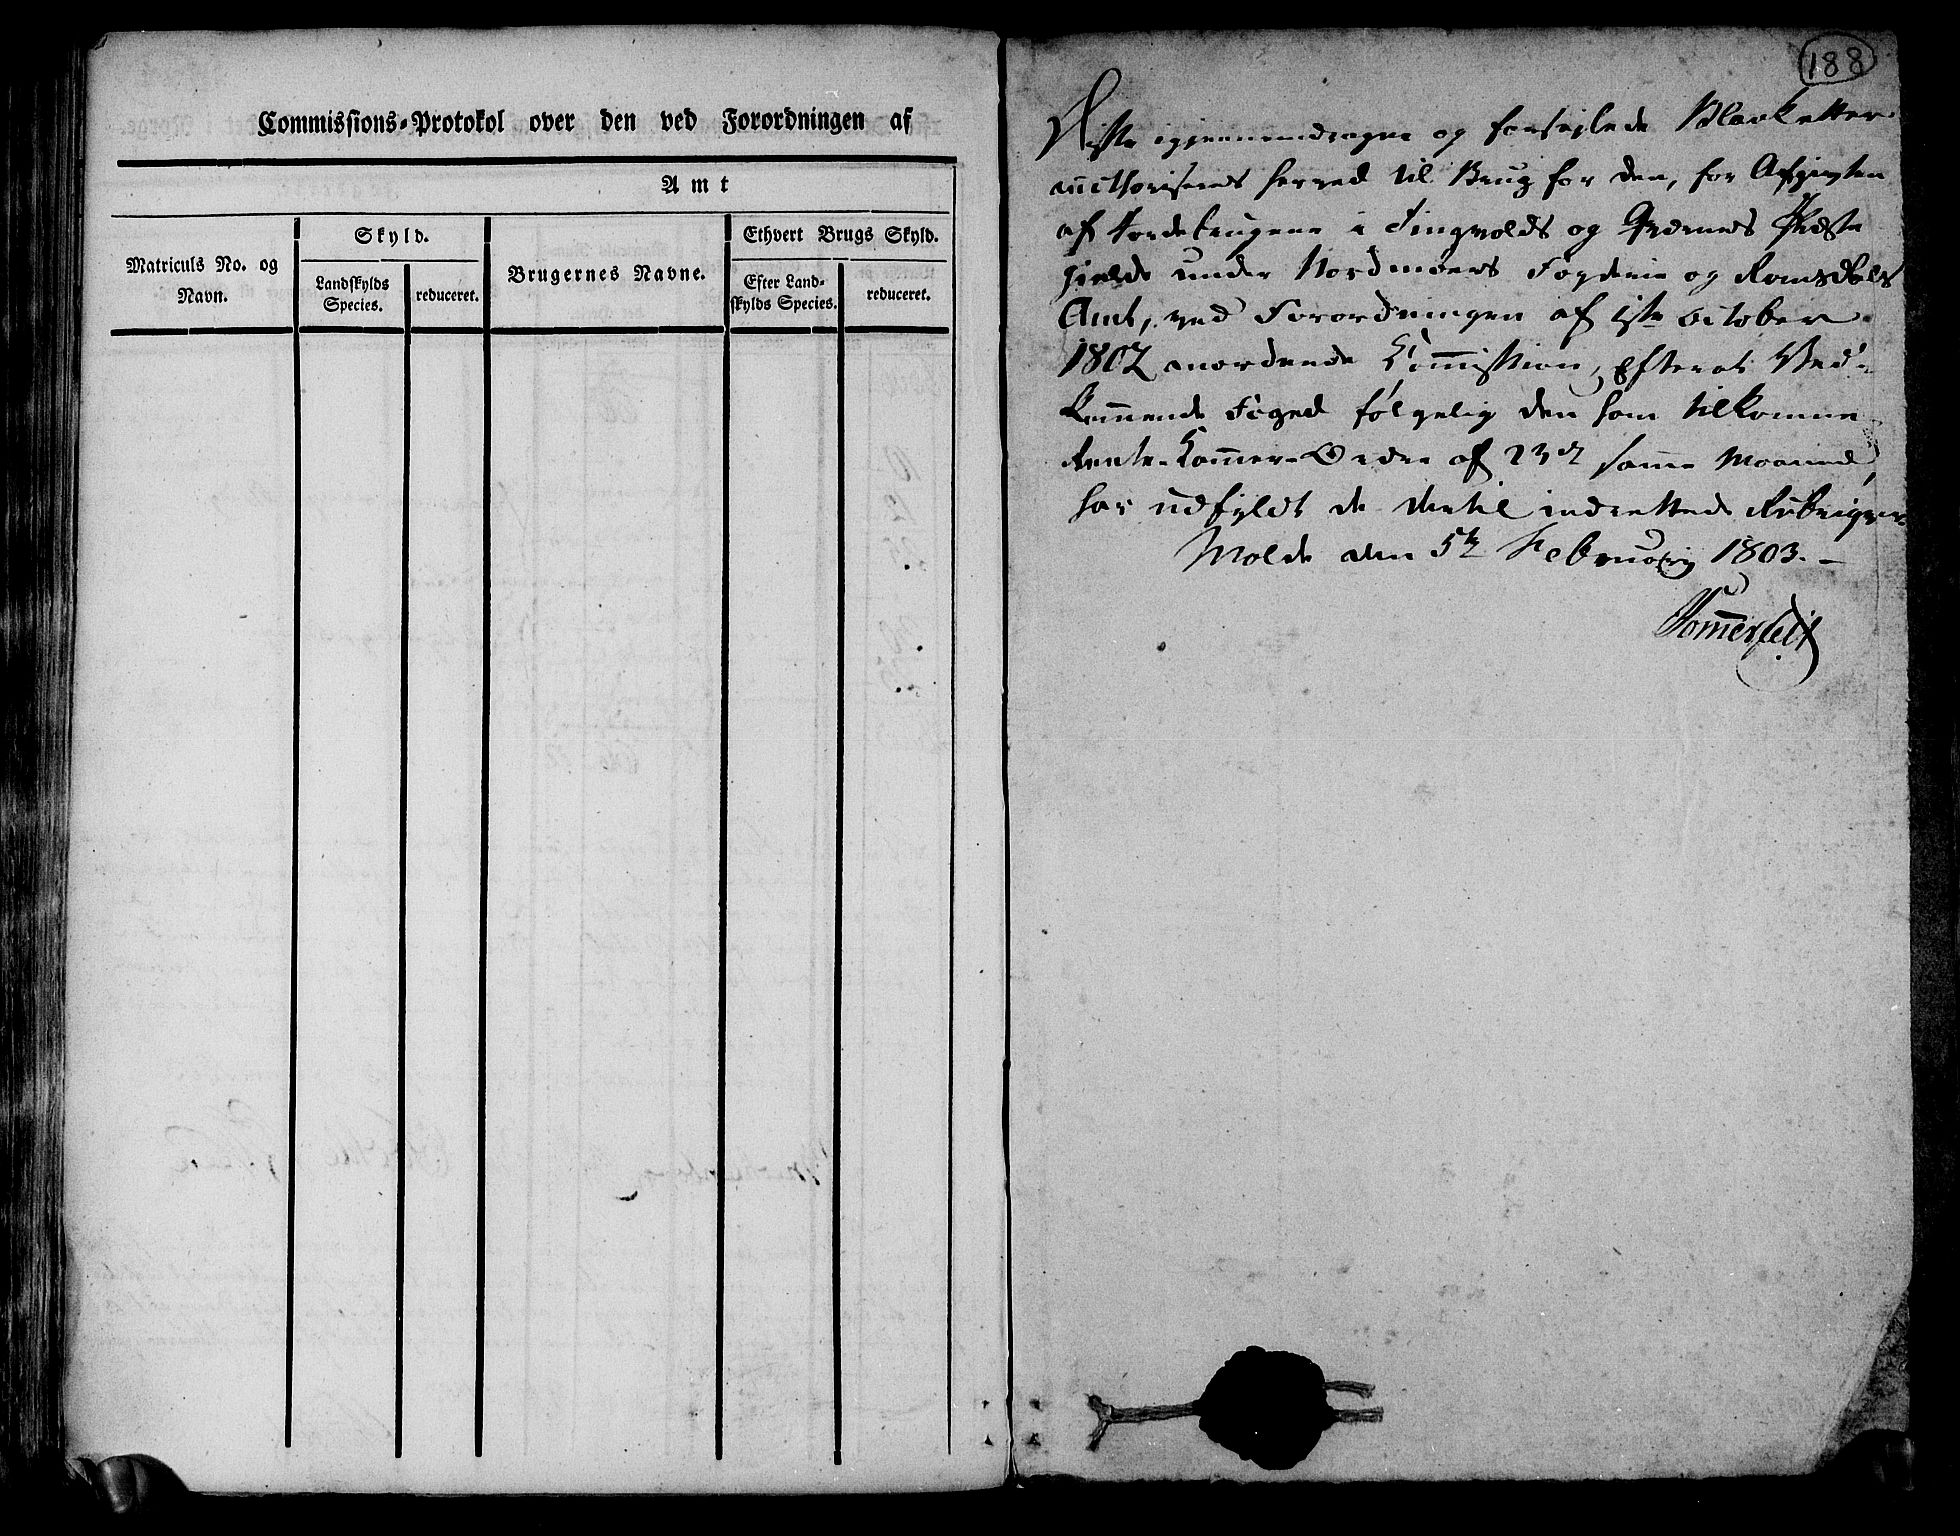 Commissions-Protokol over den ved Forordningen af
Amt
Matriculs No. og Navn.
Skyld.
Landskylds Species.
reduceret.
Brugernes Navne.
Ethvert Brugs Skyld.
Efter Landskylds Species.
reduceret.
188
igjennemdragne og forseglede Blanketter
aucthoriseres herved til Brug for den, for Afgivten
af Jordebrugene i Tingvolds og Qværnes Præste
gjelde under Nordmøers Fogderie og Romsdals
Amt, ved Forordningen af 1ste October
1802 anordnede Commission, Efterat Ved-
kommende Foged følgelig den ham tilkomne
Rente-Kammer-Ordre af 23de samme Maaned,
har udfyldt de dertil indrettede Rubriqver
Molde den 5te Februarij 1803.-
Sommerfeldt